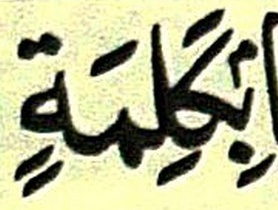 اۢ بِكَلِمَةٍ